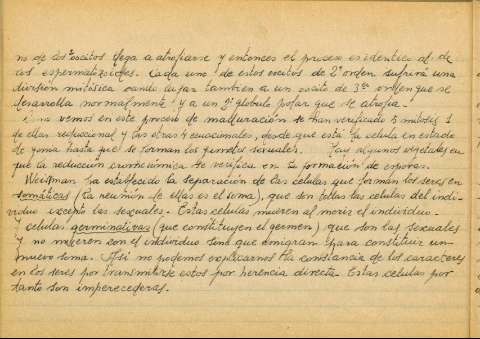 no de los oocitos llega a atrofiarse y entonces el proceso es identico al de
los espermatozoides. Cada uno de estos oocitos de 2º orden sufrirá una
división mitosica dando lugar tambien a un oocito de 3er orden que se
desarolla normalmente y a un 2º globulo polar que se atrofia.
vemos en este proceso de maduración se han verificado 3 mitosis, 1
de ellas reduccional y las otras ecuacionales, desde que está la celula en estado
de goma hasta que se forman los gametos sexuales. Hay algunos vejetales en
que la reducción cromosómica se verifica en la formación de esporas.
Weisman ha establecido la separación de las celulas que forman los seres en
somáticas (la reunión de ellas es el soma), que son todas las celulas del indi-
viduo excepto las sexuales. Estas celulas mueren al morir el individuo.
Y celulas germinativas (que constituyen el germen) que son las sexuales
y no mueren con el individuo sino que emigran para constituir un
nuevo soma. Asi no podemos explicarnos la constancia de los caracteres
en los seres por transmitirse estos por herencia directa. Estas celulas por
tanto son imperecederas.